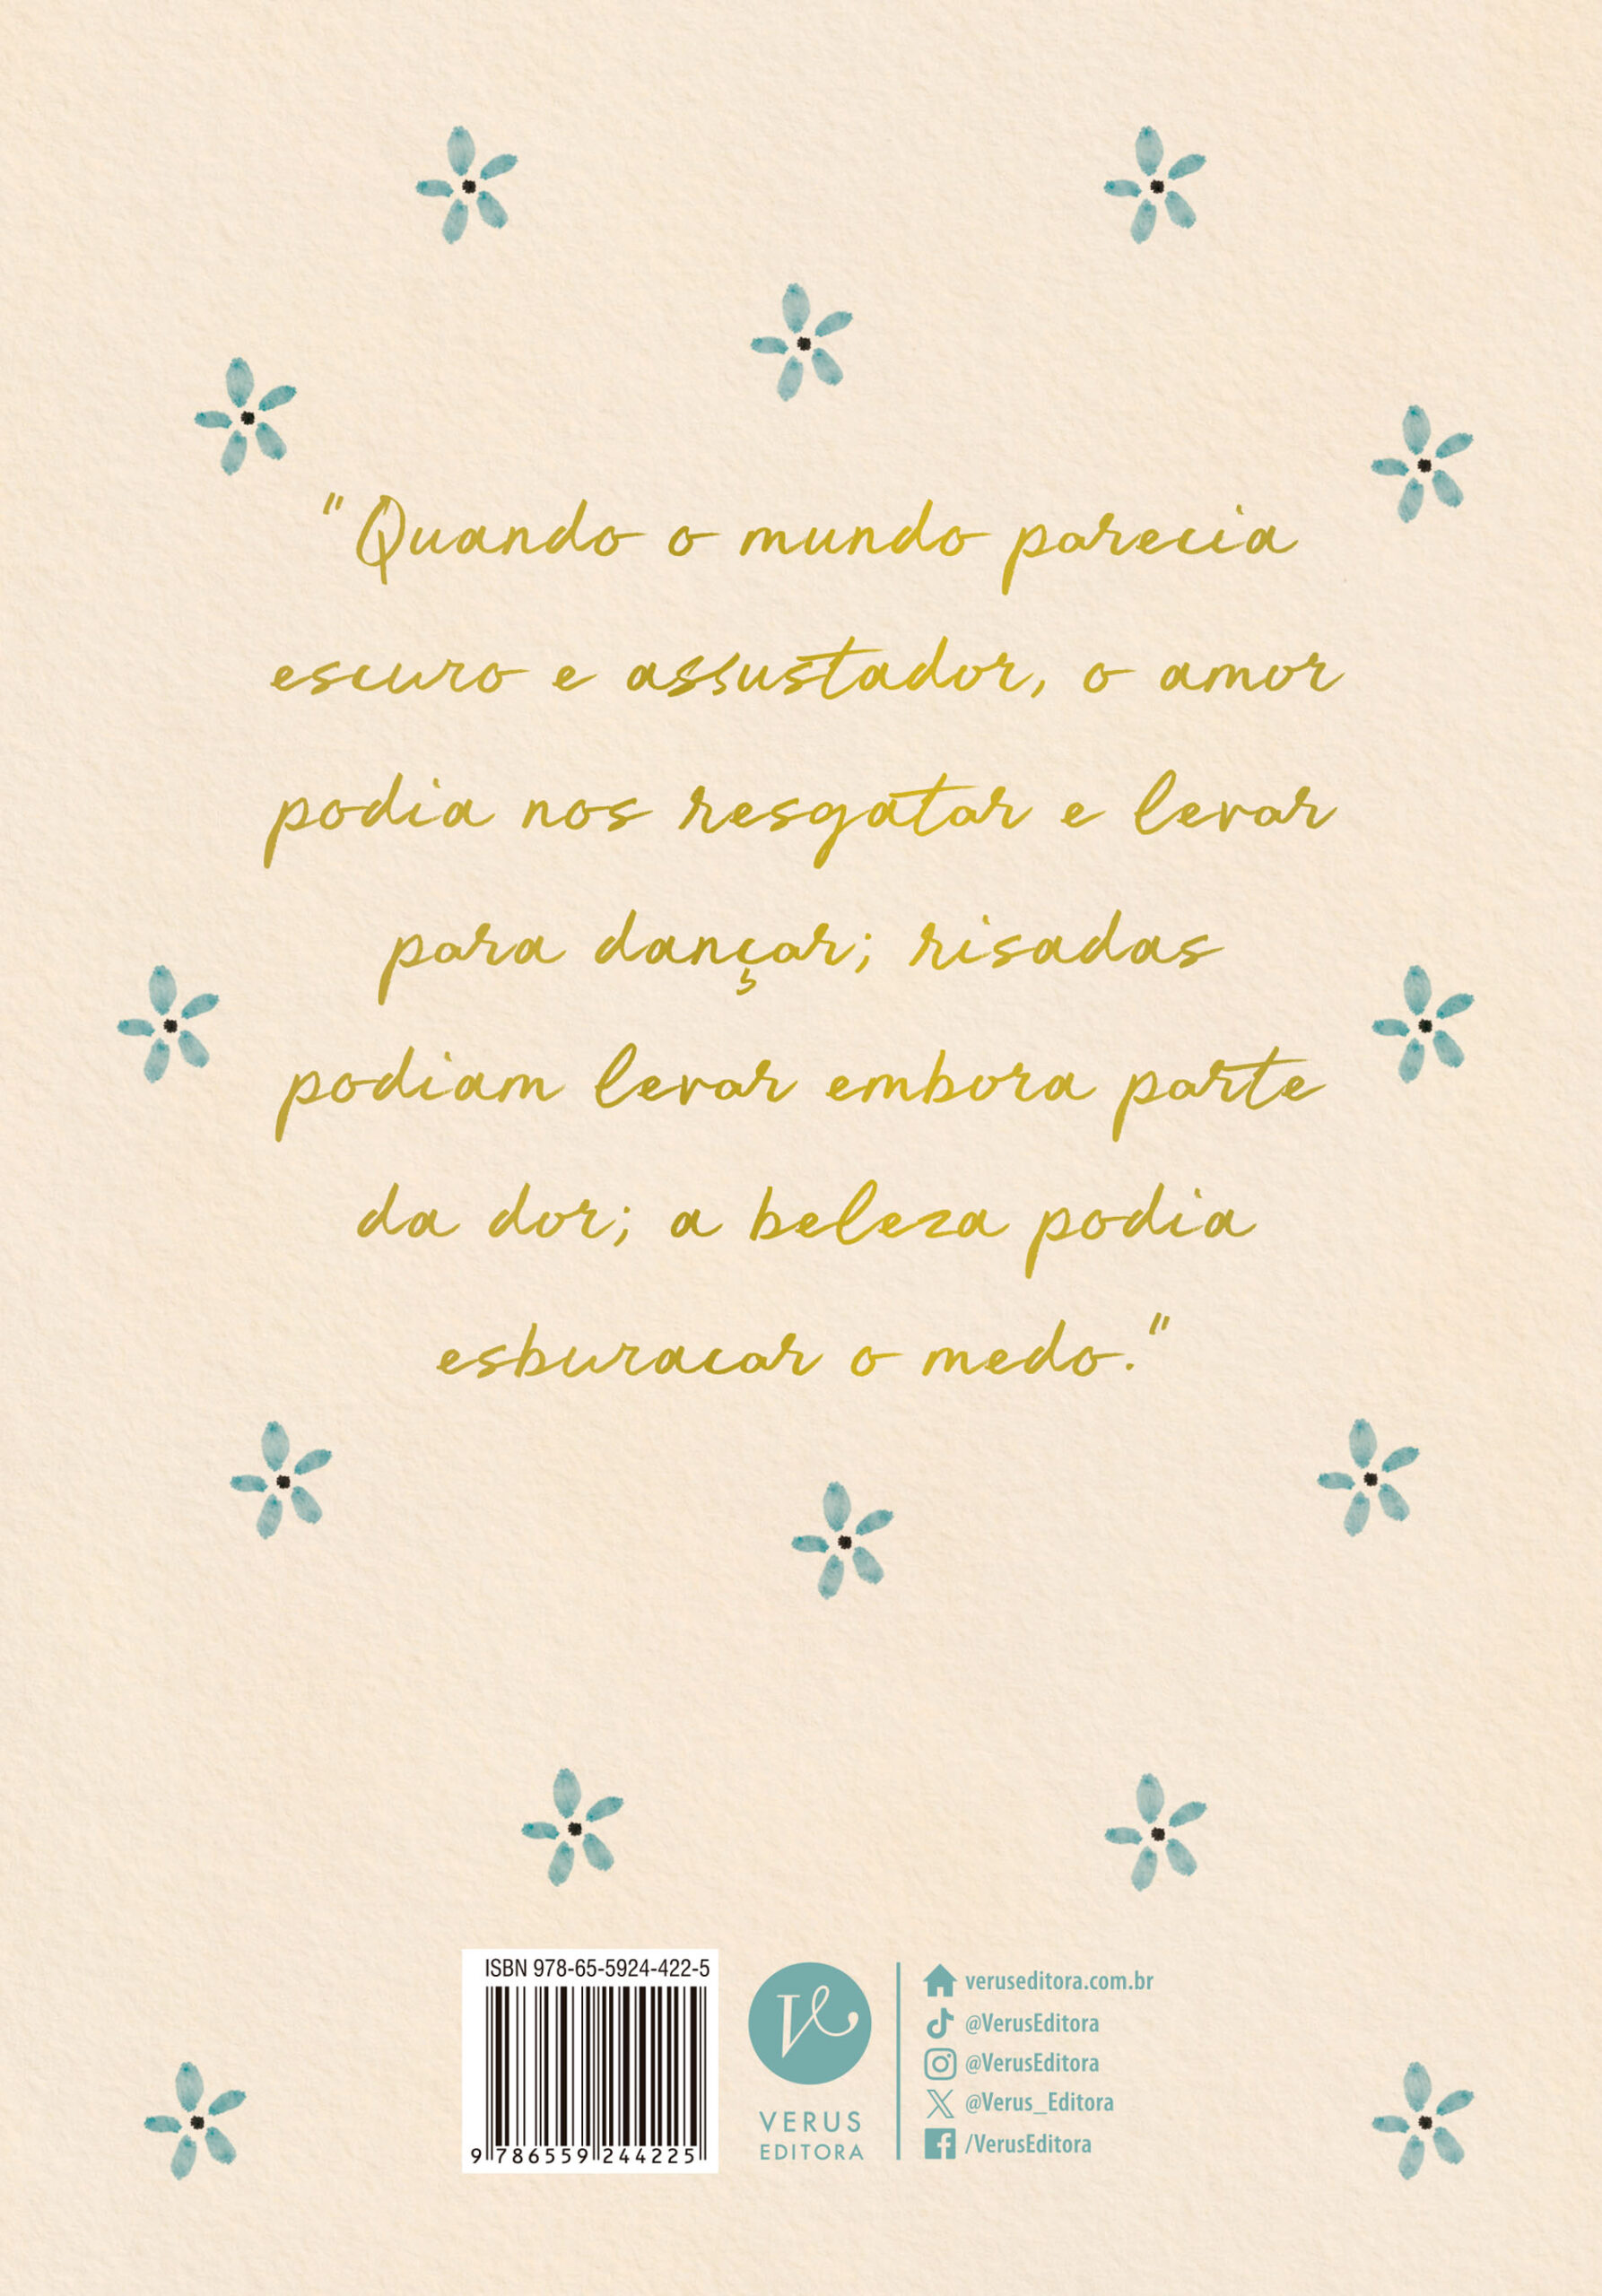 "Quando o mundo parecia
escuro e assustador, o amor
podia nos resgatar e levar
para dançar; risadas
podiam levar embora parte
da dor; a beleza podia
esburacar o medo."
ISBN 978-65-5924-422-5
9 786559 244225
VERUS
EDITORA
veruseditora.com.br
@VerusEditora
@VerusEditora
@Verus_Editora
/VerusEditora